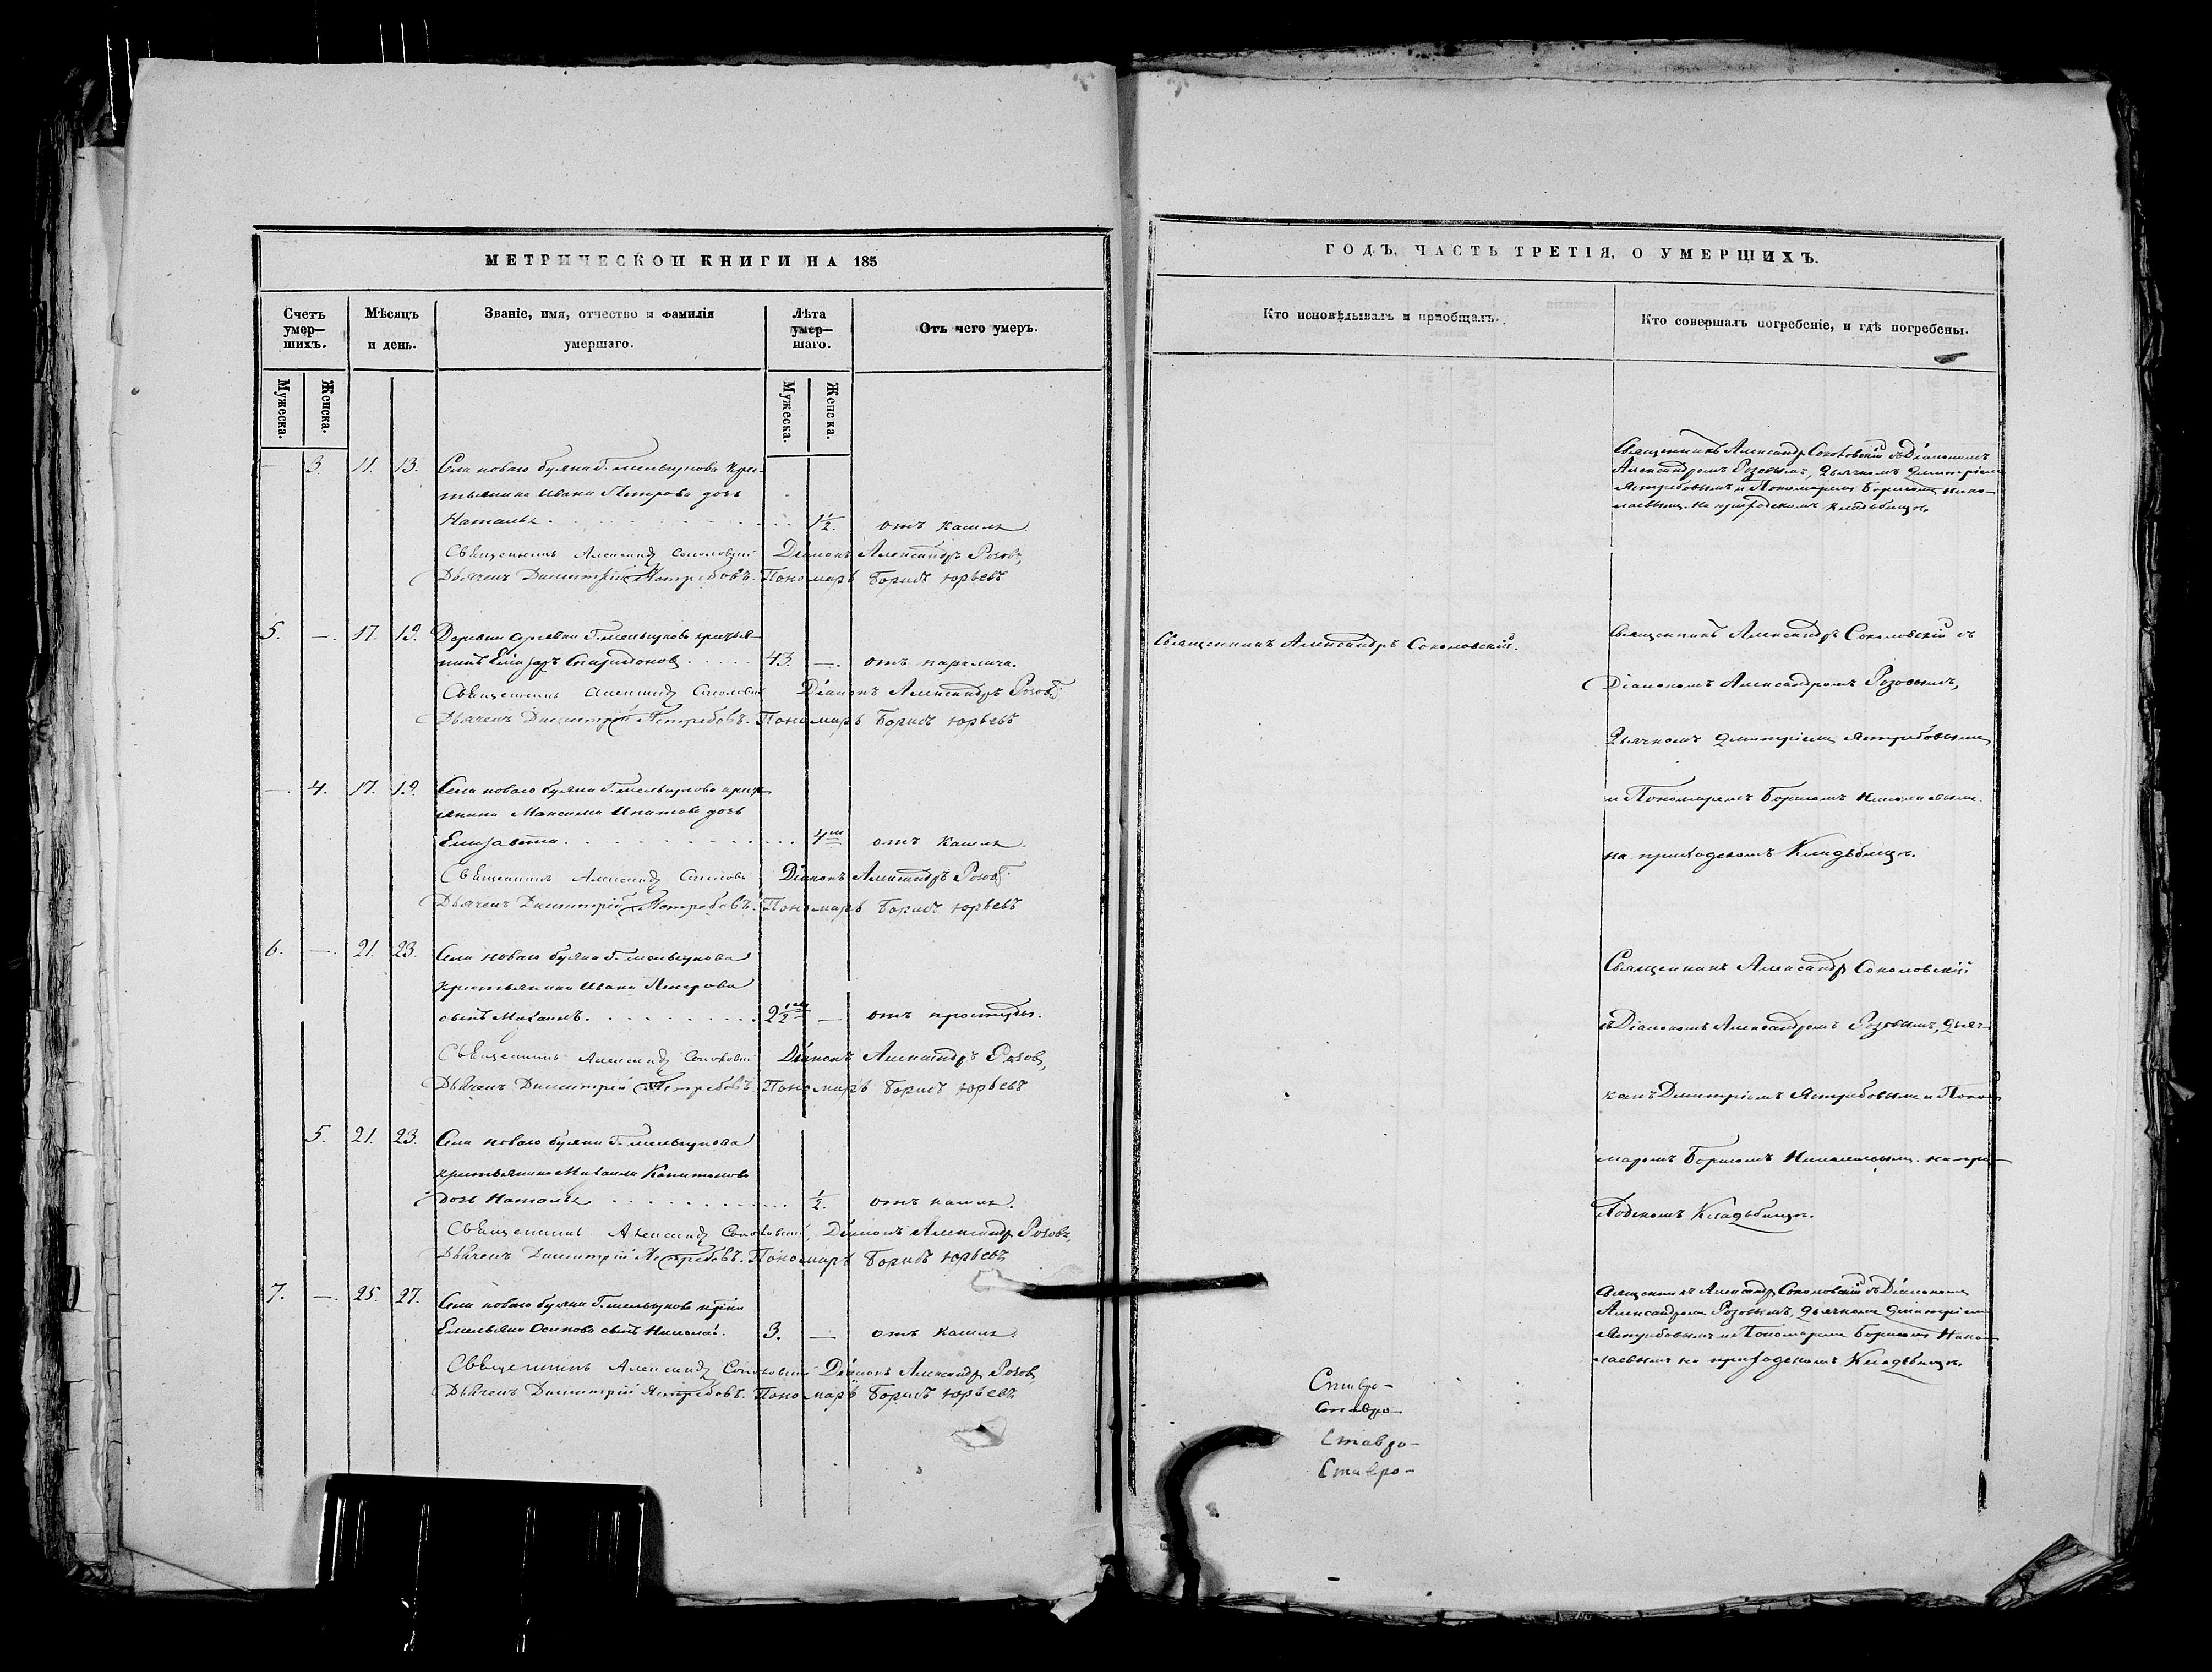 МЕТРИЧЕСКОЙ КНИГИ НА 185
Счетъ умер-шихъ.
Мѣсяцъ и день.
Званіе, имя, отчество и фамилія умершаго.
Лѣта умер-шаго.
Отъ чего умеръ.
Мужеска. Женска.
Мужеска. Женска.
— 3. 11. 13. Села новаго буяна Г. Мельгунова кре-
стьянина Ивана Петрова дочь
Наталья . . . 1½. отъ кашля.
Священникъ Александръ Соколовскій Діаконъ Александръ Розовъ,
Дьячекъ Димитрій Ястребовъ. Пономарь Борисъ Юрьевъ
5. —. 17. 19. Деревни Г. Мельгунова крестья-
нинъ Елизаръ Спиридоновъ . . . 43. —. отъ паралича.
Священникъ Александръ Соколовскій Діаконъ Александръ Розовъ
Дьячекъ Димитрій Ястребовъ. Пономарь Борисъ Юрьевъ
—. 4. 17. 19. Села новаго буяна Г. Мельгунова крест
янина Максима дочь
Елизавета . . . 4 м отъ кашля.
Священникъ Александръ Діаконъ Александръ Розовъ
Дьячекъ Димитрій Ястребовъ. Пономарь Борисъ Юрьевъ
6. —. 21. 23. Села новаго буяна Г. Мельгунова
крестьянина Ивана Петрова
сынъ Михаилъ. . . . 2½ — отъ простуды.
Священникъ Александръ Соколовскій Діаконъ Александръ Розовъ,
Дьячекъ Димитрій Ястребовъ. Пономарь Борисъ Юрьевъ
5. 21. 23. Села новаго буяна Г. Мельгунова
крестьянина Михаила Капитонова
дочь Наталья . . . ½. отъ кашля.
Священникъ Александръ Соколовскій, Діаконъ Александръ Розовъ,
Дьячекъ Димитрій Ястребовъ. Пономарь Борисъ Юрьевъ
7. —. 25. 27. Села новаго буяна Г. Мельгунова крна
Емельяна Осипова сынъ Николай. 3. — отъ кашля.
Священникъ Александръ Соколовскій Діаконъ Александръ Розовъ,
Дьячекъ Димитрій Ястребовъ. Пономарь Борисъ Юрьевъ
ГОДЪ, ЧАСТЬ ТРЕТІЯ, О УМЕРШИХЪ.
Кто исповѣдывалъ и пріобщалъ.
Кто совершалъ погребеніе, и гдѣ погребены.
Священникъ Александръ Соколовскій съ Діакономъ
Александромъ Розовымъ, Дьячкомъ Дмитріемъ
Ястребовымъ и Пономаремъ Борисомъ Нико-
лаевымъ. на приходскомъ кладбищѣ.
Священникъ Александръ Соколовскій.
Священникъ Александръ Соколовскій съ
Діакономъ Александромъ Розовымъ,
Дьячкомъ Дмитріемъ Ястребовымъ
и Пономаремъ Борисомъ Николаевымъ.
на приходскомъ Кладбищѣ.
Священникъ Александръ Соколовскій
съ Діакономъ Александромъ Розовымъ, Дьяч-
комъ Дмитріемъ Ястребовымъ и Поно
маремъ Борисомъ Николаевымъ. на при-
ходскомъ Кладбищѣ.
Священникъ Александръ Соколовскій съ Діакономъ
Александромъ Розовымъ, Дьячкомъ Дмитріемъ
Ястребовымъ и Пономаремъ Борисомъ Нико-
лаевымъ на приходскомъ Кладбищѣ.
Ставро-
Ставро-
Ставро-
Ставро-